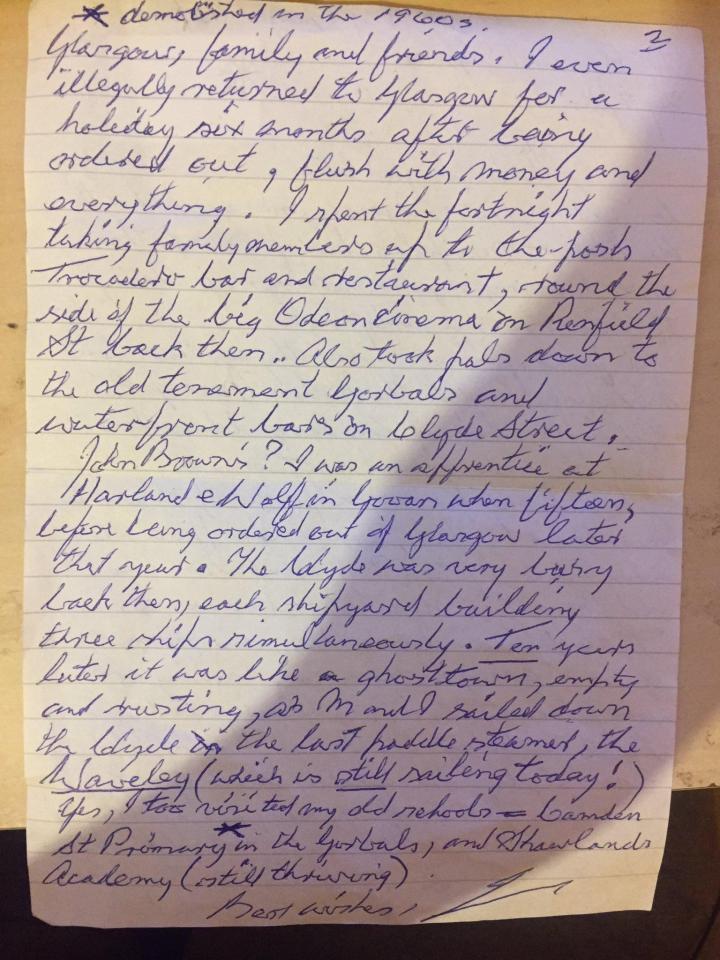 * demolished in the 1960s.
2
Glasgow, family and friends. I even
illegally returned to Glasgow for a
holiday six months after being
ordered out, flush with money and
everything. I spent the fortnight
taking family members up to the posh
Trocadero bar and restaurant, round the
side of the big Odeon Cinema on Renfield
St back then.. Also took pals down to
the old tenement Gorbals and
waterfront bars on Clyde Street.
John Brown's? I was an apprentice at
Harland & Wolf in Govan when fifteen,
before being ordered out of Glasgow later
that year. The Clyde was very busy
back then, each shipyard building
three ships simultaneously. Ten years
later it was like a ghost town, empty
and rusting, as M and I sailed down
the Clyde in the last paddle steamer, the
Waveley (which is still sailing today!)
Yes, I too visited my old schools = Camden
St Primary * in the Gorbals, and Shawlands
Academy (still thriving)
Best wishes,